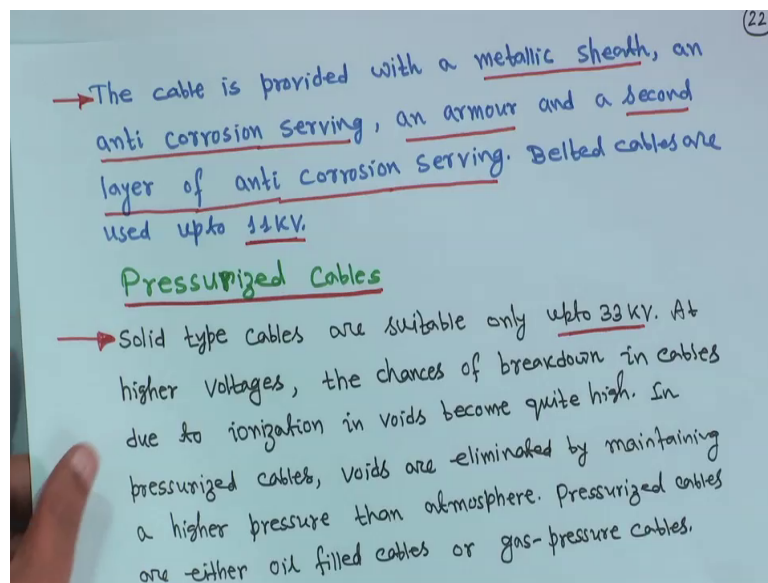 22
→ The cable is provided with a metallic sheath, an
anti corrosion serving, an armour and a second
layer of anti corrosion serving. Belted cables are
used upto 11KV.
Pressurized Cables
→ Solid type cables are suitable only upto 33 KV. At
higher voltages, the chances of breakdown in cables
due to ionization in voids become quite high. In
pressurized cables, voids are eliminated by maintaining
a higher pressure than atmosphere. Pressurized cables
are either oil filled cables or gas-pressure cables.